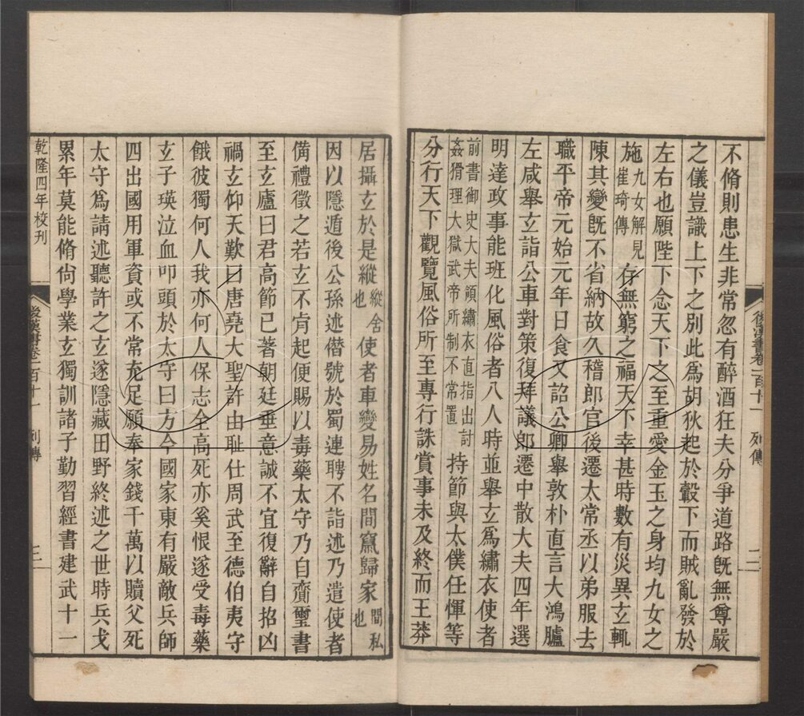 不脩則患生非常忽有醉酒狂夫分爭道路旣無尊嚴
之儀豈識上下之別此爲胡狄起於轂下而賊亂發於
左右也願陛下念天下之至重愛金玉之身均九女之
施九女解見崔琦傳存無窮之福天下幸甚時數有災異玄輒
陳其變旣不省納故久稽郎官後遷太常丞以弟服去
職平帝元始元年日食又詔公卿舉敦朴直言大鴻臚
左咸舉玄詣公車對策復拜議郎遷中散大夫四年選
明達政事能班化風俗者八人時並舉玄爲繡衣使者
前書御史大夫領繡衣直指出討姦猾理大獄武帝所制不常置持節與太僕任惲等
分行天下觀覽風俗所至專行誅賞事未及終而王莽
後漢書卷一百十一 列傳 二
居攝玄於是縱縱舍也使者車變易姓名間竄歸家間私也
因以隱遁後公孫述僭號於蜀連聘不詣述乃遣使者
僃禮徵之若玄不肯起便賜以毒藥太守乃自齎璽書
至玄廬曰君高節已著朝廷垂意誠不宜復辭自招凶
禍玄仰天歎曰唐堯大聖許由耻仕周武至德伯夷守
餓彼獨何人我亦何人保志全高死亦奚恨遂受毒藥
玄子瑛泣血叩頭於太守曰方今國家東有嚴敵兵師
四出國用軍資或不常充足願奉家錢千萬以贖父死
太守爲請述聽許之玄遂隱藏田野終述之世時兵戈
累年莫能脩尙學業玄獨訓諸子勤習經書建武十一
乾隆四年校刊
後漢書卷一百十一 列傳 三